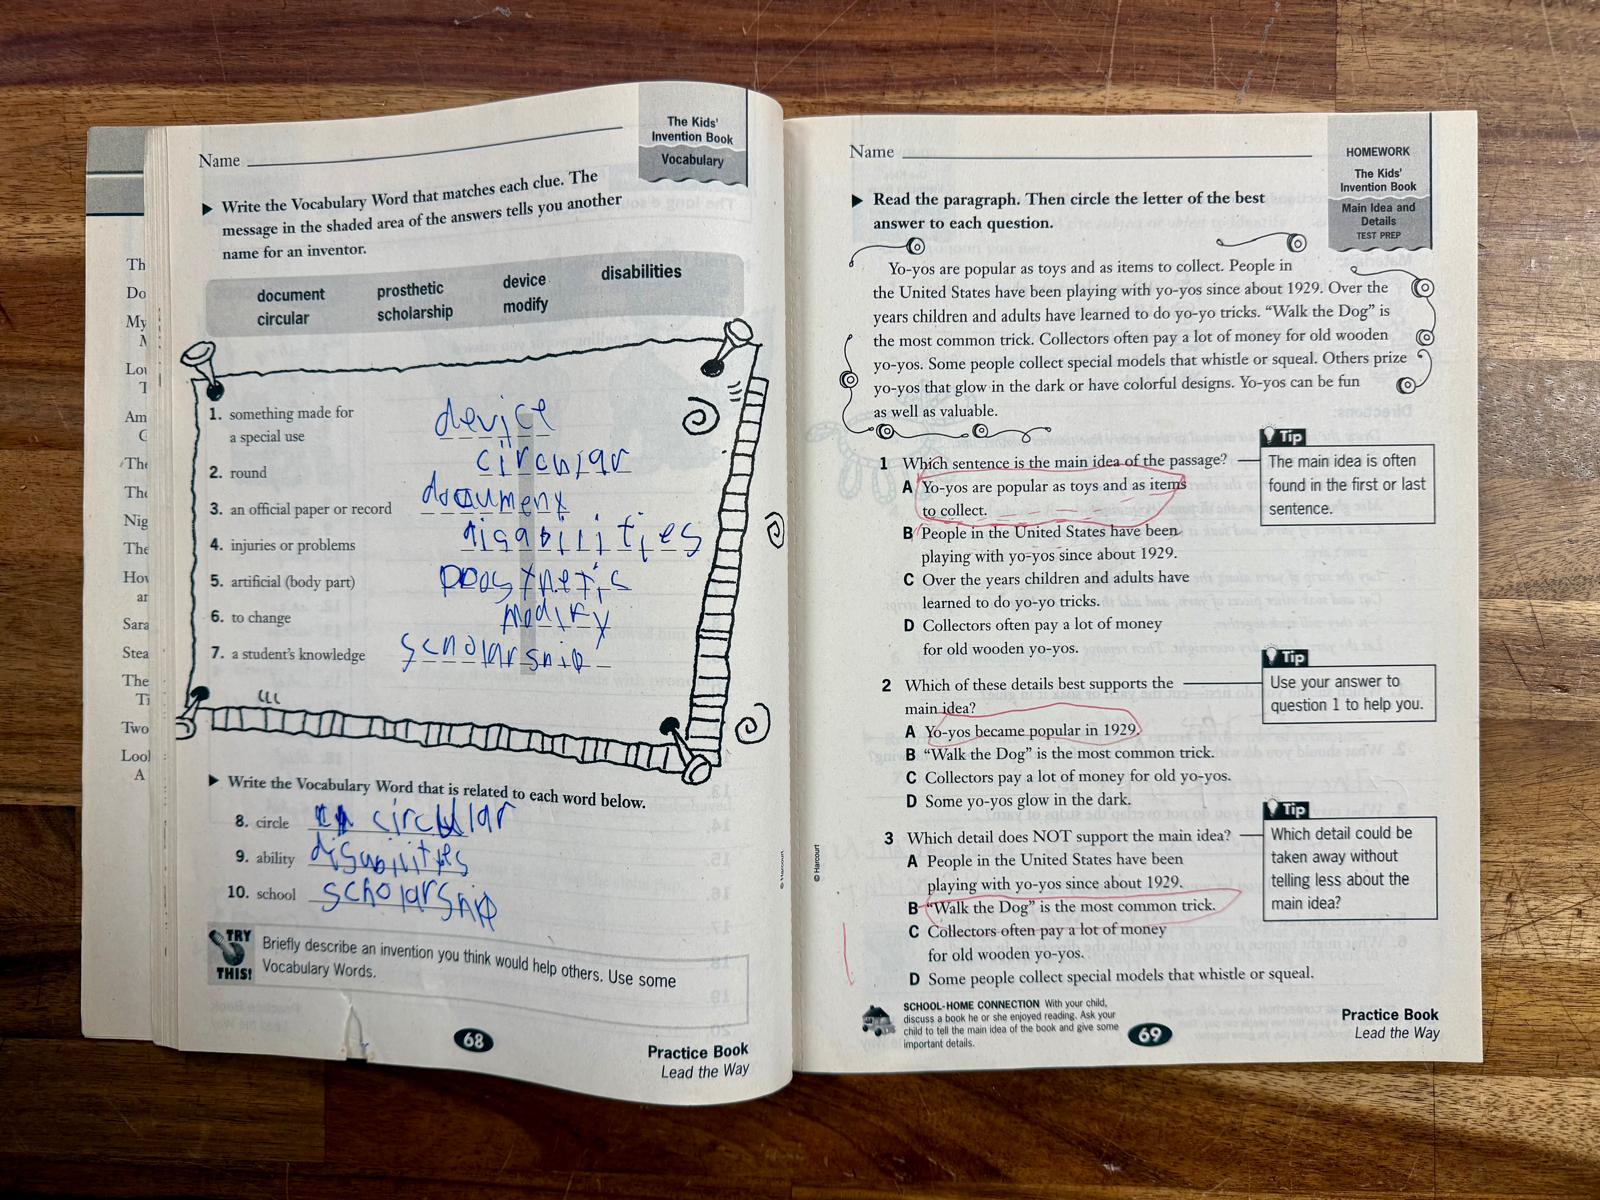 Th
Do
My
Lo
T
Am
The
The
Nig
The
How
ar
Sara
Stea
The
Ti
Two
Lool
A
The Kids'
Invention Book
Vocabulary
Name
Write the Vocabulary Word that matches each clue. The
message in the shaded area of the answers tells you another
name for an inventor.
document prosthetic device disabilities
circular scholarship modify
1. something made for
a special use device
2. round circular
3. an official paper or record document
4. injuries or problems disabilities
5. artificial (body part) prosthetic
6. to change modify
7. a student's knowledge scholarship
Write the Vocabulary Word that is related to each word below.
8. circle circular
9. ability disabilities
10. school scholarship
TRY
THIS!
Briefly describe an invention you think would help others. Use some
Vocabulary Words.
© Harcourt
68
Practice Book
Lead the Way
Name
HOMEWORK
The Kids'
Invention Book
Main Idea and
Details
TEST PREP
Read the paragraph. Then circle the letter of the best
answer to each question.
Yo-yos are popular as toys and as items to collect. People in
the United States have been playing with yo-yos since about 1929. Over the
years children and adults have learned to do yo-yo tricks. “Walk the Dog” is
the most common trick. Collectors often pay a lot of money for old wooden
yo-yos. Some people collect special models that whistle or squeal. Others prize
yo-yos that glow in the dark or have colorful designs. Yo-yos can be fun
as well as valuable.
1 Which sentence is the main idea of the passage?
A Yo-yos are popular as toys and as items
to collect.
B People in the United States have been
playing with yo-yos since about 1929.
C Over the years children and adults have
learned to do yo-yo tricks.
D Collectors often pay a lot of money
for old wooden yo-yos.
Tip
The main idea is often
found in the first or last
sentence.
2 Which of these details best supports the
main idea?
A Yo-yos became popular in 1929.
B “Walk the Dog” is the most common trick.
C Collectors pay a lot of money for old yo-yos.
D Some yo-yos glow in the dark.
Tip
Use your answer to
question 1 to help you.
3 Which detail does NOT support the main idea?
A People in the United States have been
playing with yo-yos since about 1929.
B “Walk the Dog” is the most common trick.
C Collectors often pay a lot of money
for old wooden yo-yos.
D Some people collect special models that whistle or squeal.
Tip
Which detail could be
taken away without
telling less about the
main idea?
© Harcourt
SCHOOL-HOME CONNECTION With your child,
discuss a book he or she enjoyed reading. Ask your
child to tell the main idea of the book and give some
important details.
69
Practice Book
Lead the Way